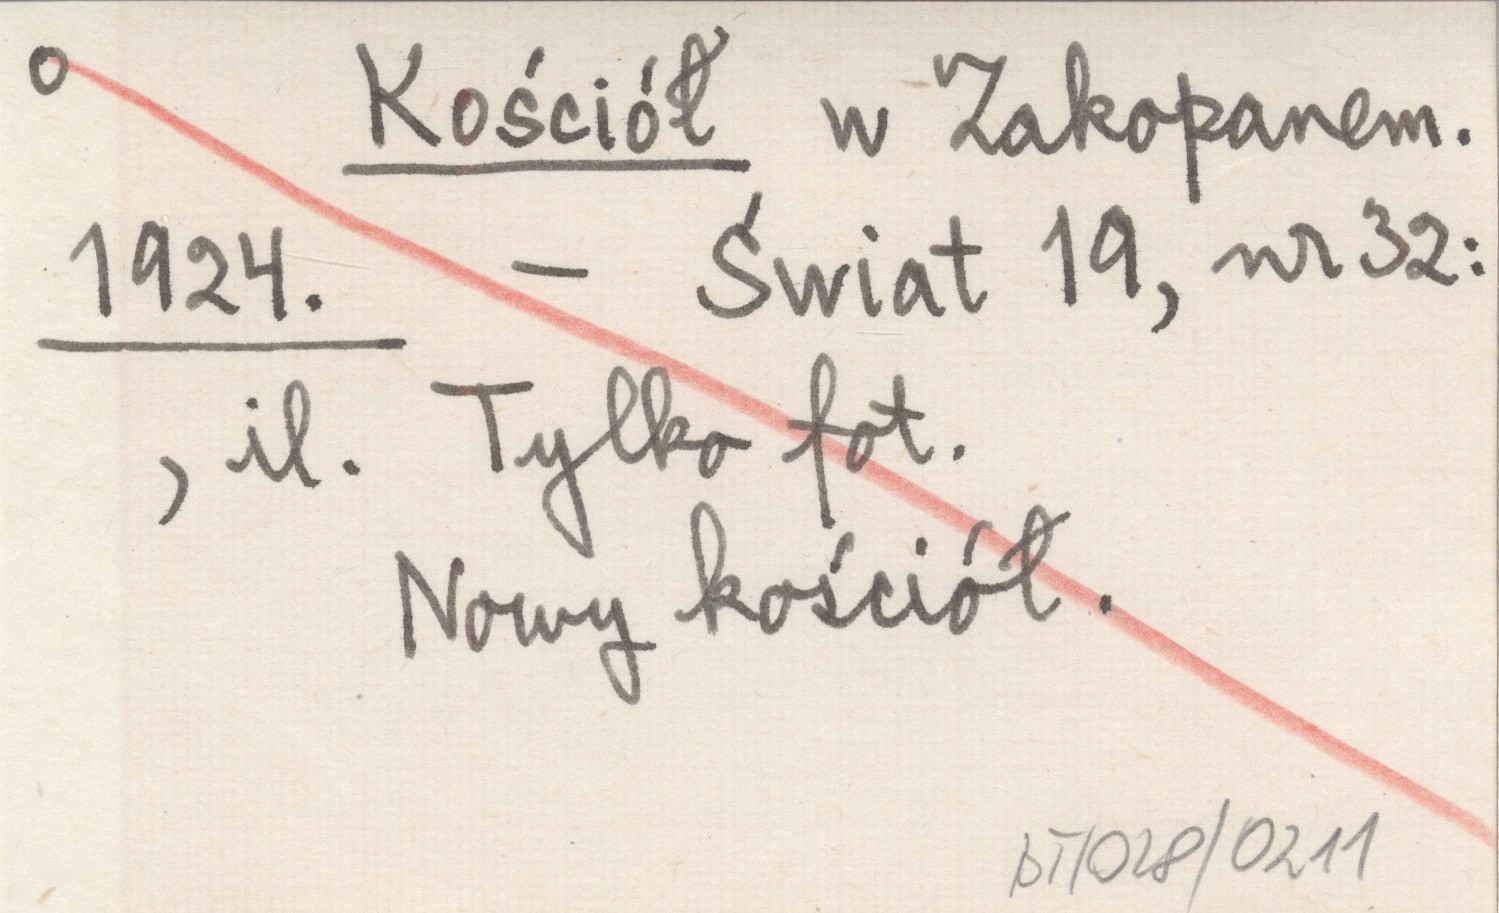 o Kościół w Zakopanem.
1924. – Świat 19, nr 32:
, il. Tylko fot.
Nowy kościół.
bT/028/0211